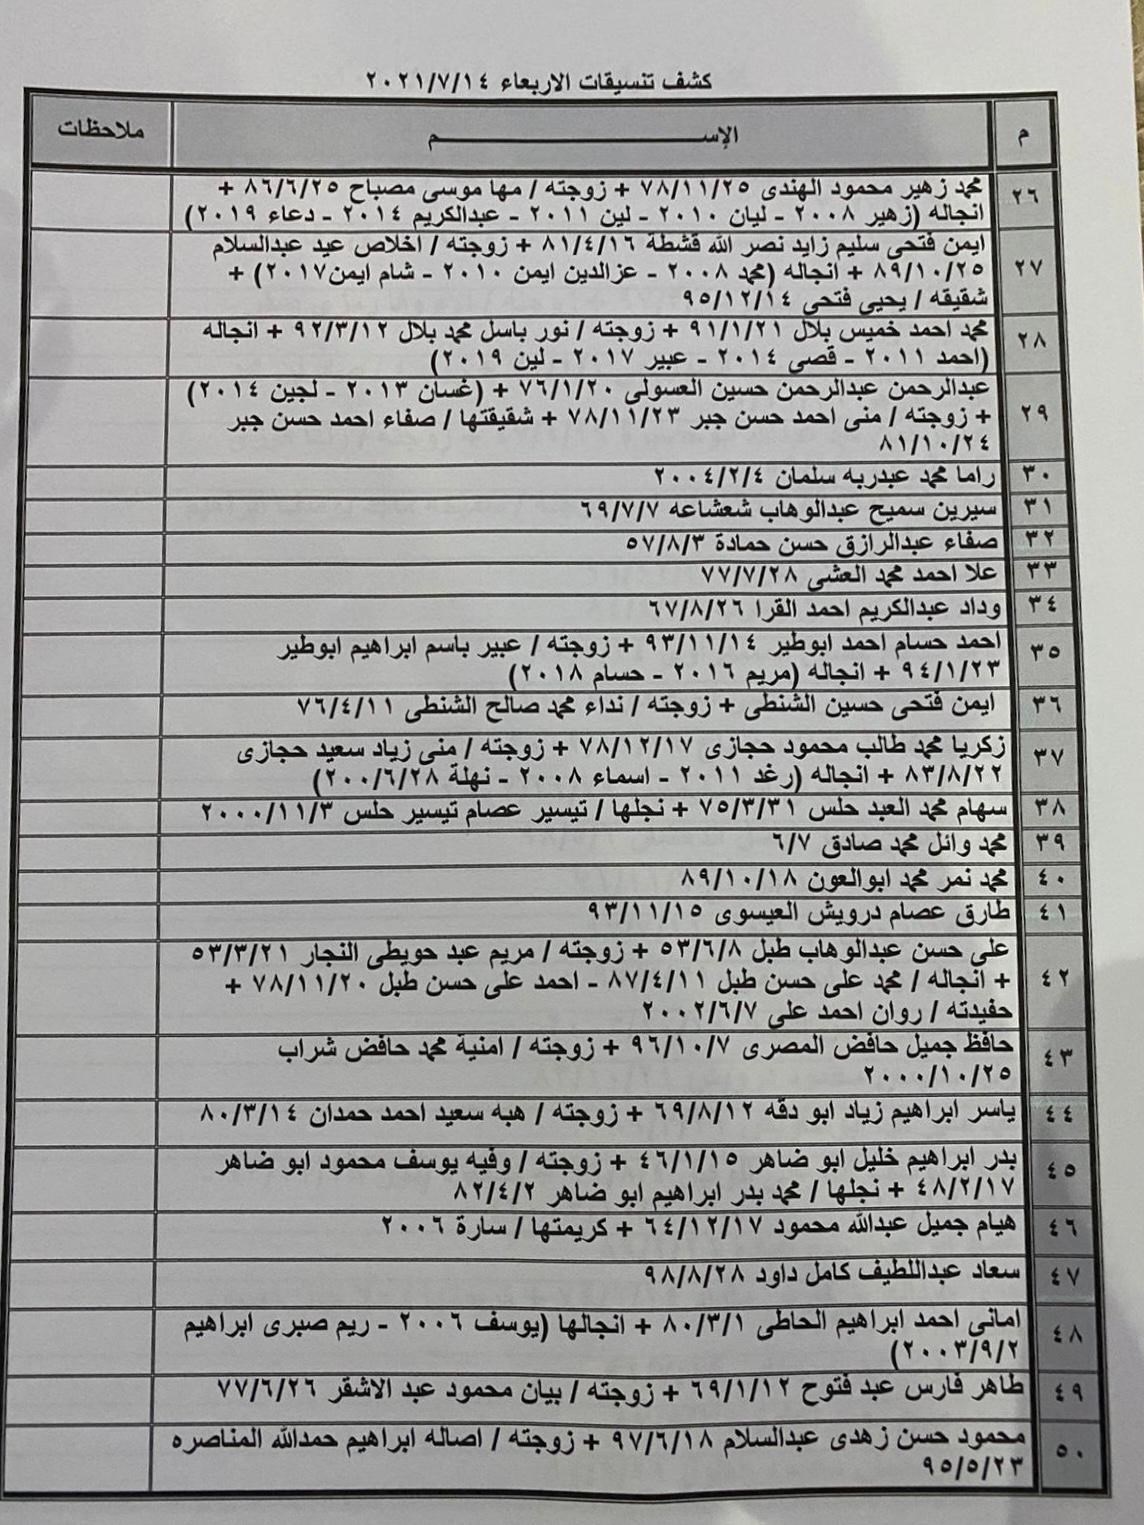 كشف تنسيقات الاربعاء ٢٠٢١/٧/١٤
م الإســـــــــــــم ملاحظات
٢٦ محمد زهير محمود الهندى ٧٨/١١/٢٥ + زوجته / مها موسى مصباح ٨٦/٦/٢٥ +
انجاله (زهير ٢٠٠٨ - ليان ٢٠١٠ - لين ٢٠١١ - عبدالكريم ٢٠١٤ - دعاء ٢٠١٩)
٢٧ ايمن فتحى سليم زايد نصر الله قشطة ٨١/٤/١٦ + زوجته / اخلاص عيد عبدالسلام
٨٩/١٠/٢٥ + انجاله (محمد ٢٠٠٨ - عزالدين ايمن ٢٠١٠ - شام ايمن٢٠١٧) +
شقيقه / يحيى فتحى ٩٥/١٢/١٤
٢٨ محمد احمد خميس بلال ٩١/١/٢١ + زوجته / نور باسل محمد بلال ٩٢/٣/١٢ + انجاله
(احمد ٢٠١١ - قصى ٢٠١٤ - عبير ٢٠١٧ - لين ٢٠١٩)
٢٩ عبدالرحمن عبدالرحمن حسين العسولى ٧٦/١/٢٠ + (غسان ٢٠١٣ - لجين ٢٠١٤)
+ زوجته / منى احمد حسن جبر ٧٨/١١/٢٣ + شقيقتها / صفاء احمد حسن جبر
٨١/١٠/٢٤
٣٠ راما محمد عبدربه سلمان ٢٠٠٤/٢/٤
٣١ سيرين سميح عبدالوهاب شعشاعه ٦٩/٧/٧
٣٢ صفاء عبدالرازق حسن حمادة ٥٧/٨/٣
٣٣ علا احمد محمد العشى ٧٧/٧/٢٨
٣٤ وداد عبدالكريم احمد القرا ٦٧/٨/٢٦
٣٥ احمد حسام احمد ابوطير ٩٣/١١/١٤ + زوجته / عبير باسم ابراهيم ابوطير
٩٤/١/٢٣ + انجاله (مريم ٢٠١٦ - حسام ٢٠١٨)
٣٦ ايمن فتحى حسين الشنطى + زوجته / نداء محمد صالح الشنطى ٧٦/٤/١١
٣٧ زكريا محمد طالب محمود حجازى ٧٨/١٢/١٧ + زوجته / منى زياد سعيد حجازى
٨٣/٨/٢٢ + انجاله (رغد ٢٠١١ - اسماء ٢٠٠٨ - نهلة ٢٠٠/٦/٢٨)
٣٨ سهام محمد العبد حلس ٧٥/٣/٣١ + نجلها / تيسير عصام تيسير حلس ٢٠٠٠/١١/٣
٣٩ محمد وائل محمد صادق ٦/٧
٤٠ محمد نمر محمد ابوالعون ٨٩/١٠/١٨
٤١ طارق عصام درويش العيسوى ٩٣/١١/١٥
٤٢ على حسن عبدالوهاب طبل ٥٣/٦/٨ + زوجته / مريم عبد حويطى النجار ٥٣/٣/٢١
+ انجاله / محمد على حسن طبل ٨٧/٤/١١ - احمد على حسن طبل ٧٨/١١/٢٠ +
حفيدته / روان احمد على ٢٠٠٢/٦/٧
٤٣ حافظ جميل حافض المصرى ٩٦/١٠/٧ + زوجته / امنية محمد حافض شراب
٢٠٠٠/١٠/٢٥
٤٤ ياسر ابراهيم زياد ابو دقه ٦٩/٨/١٢ + زوجته / هبه سعيد احمد حمدان ٨٠/٣/١٤
٤٥ بدر ابراهيم خليل ابو ضاهر ٤٦/١/١٥ + زوجته / وفيه يوسف محمود ابو ضاهر
٤٨/٢/١٧ + نجلها / محمد بدر ابراهيم ابو ضاهر ٨٢/٤/٢
٤٦ هيام جميل عبدالله محمود ٦٤/١٢/١٧ + كريمتها / سارة ٢٠٠٦
٤٧ سعاد عبداللطيف كامل داود ٩٨/٨/٢٨
٤٨ امانى احمد ابراهيم الحاطى ٨٠/٣/١ + انجالها (يوسف ٢٠٠٦ - ريم صبرى ابراهيم
٢٠٠٣/٩/٢)
٤٩ طاهر فارس عبد فتوح ٦٩/١/١٢ + زوجته / بيان محمود عبد الاشقر ٧٧/٦/٢٦
٥٠ محمود حسن زهدى عبدالسلام ٩٧/٦/١٨ + زوجته / اصاله ابراهيم حمدالله المناصره
٩٥/٥/٢٣